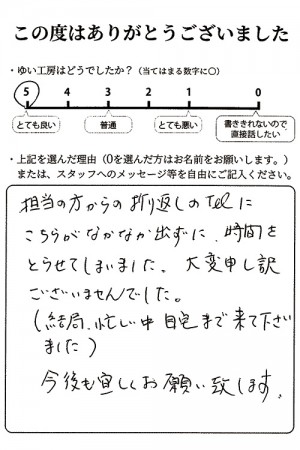 この度はありがとうございました
・ゆい工房はどうでしたか？（当てはまる数字に○）
5 4 3 2 1 0
とても良い 普通 とても悪い 書ききれないので直接話したい
・上記を選んだ理由（0を選んだ方はお名前をお願いします。）
または、スタッフへのメッセージ等を自由にご記入ください。
担当の方からの折り返しのTelに
こちらがなかなか出ずに、時間を
とらせてしまいました。大変申し訳
ございませんでした。
（結局、忙しい中自宅まで来て下さい
ました）
今後も宜しくお願い致します。